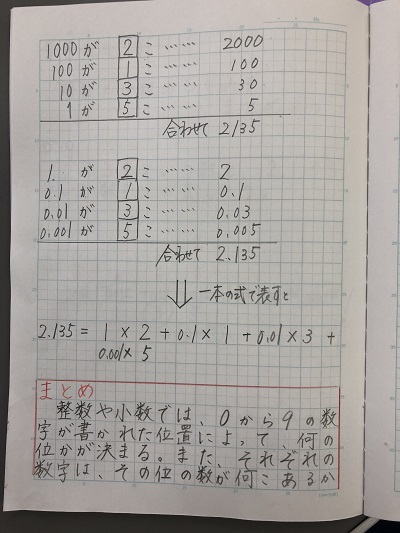 1000が 2 こ …… 2000
100が 1 こ …… 100
10が 3 こ …… 30
1が 5 こ …… 5
合わせて 2135
1 が 2 こ …… 2
0.1 が 1 こ …… 0.1
0.01 が 3 こ …… 0.03
0.001が 5 こ …… 0.005
合わせて 2.135
一本の式で表すと
2.135 = 1 × 2 + 0.1 × 1 + 0.01 × 3 +
0.001× 5
まとめ
整数や小数では、0から9の数
字が書かれた位置によって、何の
位かが決まる。また、それぞれの
数字は、その位の数が何こあるか